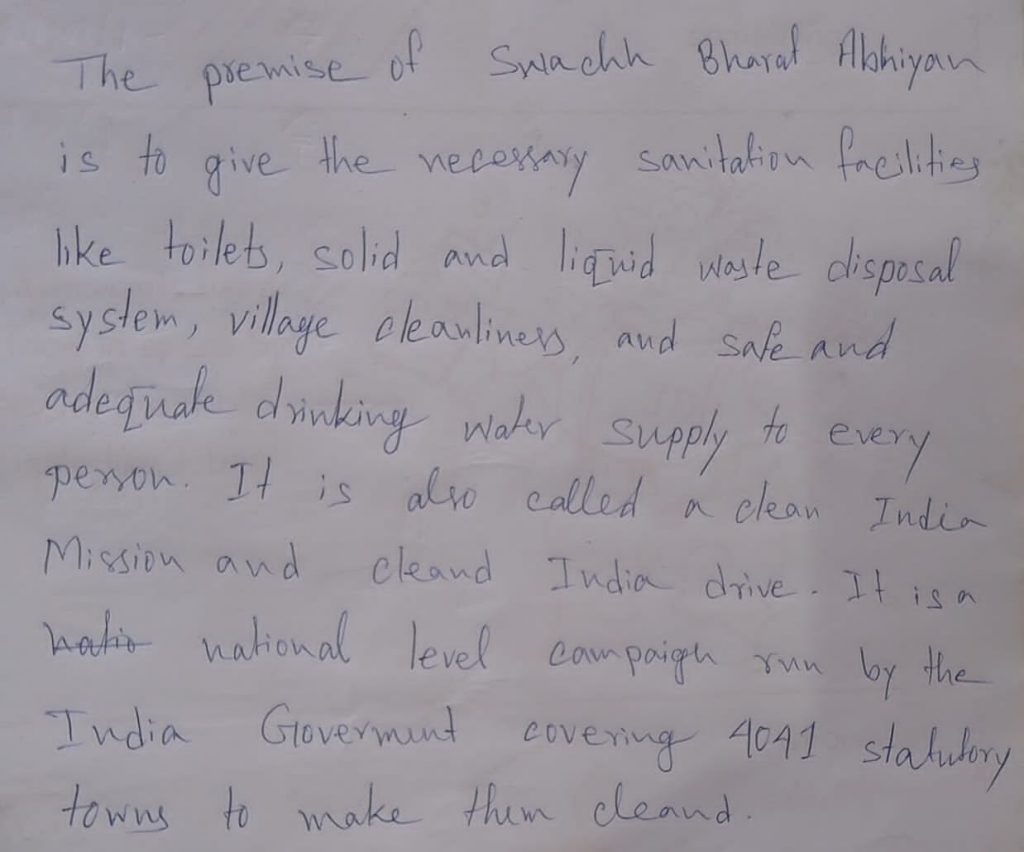 The premise of Swachh Bharat Abhiyan
is to give the necessary sanitation facilities
like toilets, solid and liquid waste disposal
system, village cleanliness, and safe and
adequate drinking water supply to every
person. It is also called a clean India
Mission and cleand India drive. It is a
natio national level campaign run by the
India Goverment covering 4041 statutory
towns to make them cleand.